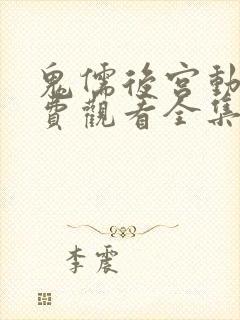 鬼儒後宮動
費觀看全集
李震